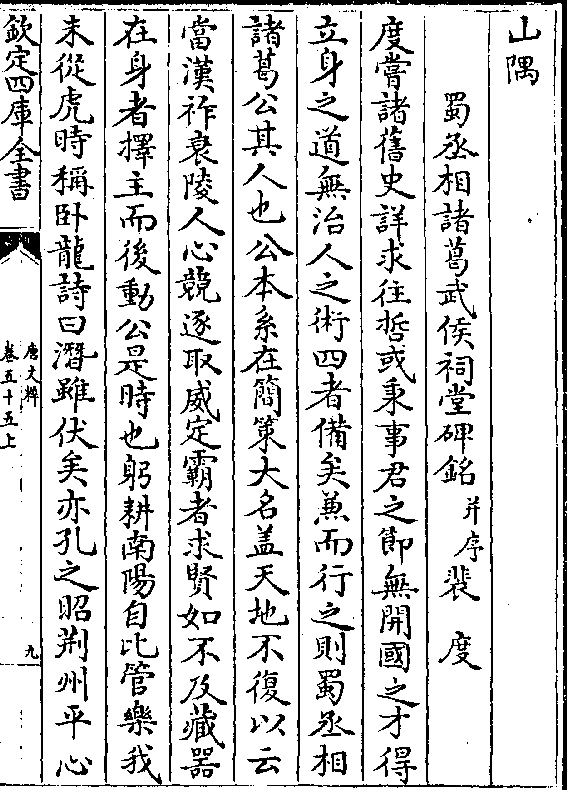 山隅
蜀丞相諸葛武侯祠堂碑銘并序 裴度
度嘗諸舊史詳求往哲或秉事君之節無開國之才得
立身之道無治人之術四者備矣兼而行之則蜀丞相
諸葛公其人也公本系在簡策大名盖天地不復以云
當漢祚衰陵人心競逐取威定霸者求賢如不及藏器
在身者擇主而後動公是時也躬耕南陽自比管樂我
未從虎時稱卧龍詩曰潛雖伏矣亦孔之昭荆州平心
欽定四庫全書
唐文粹
卷五十五上
九